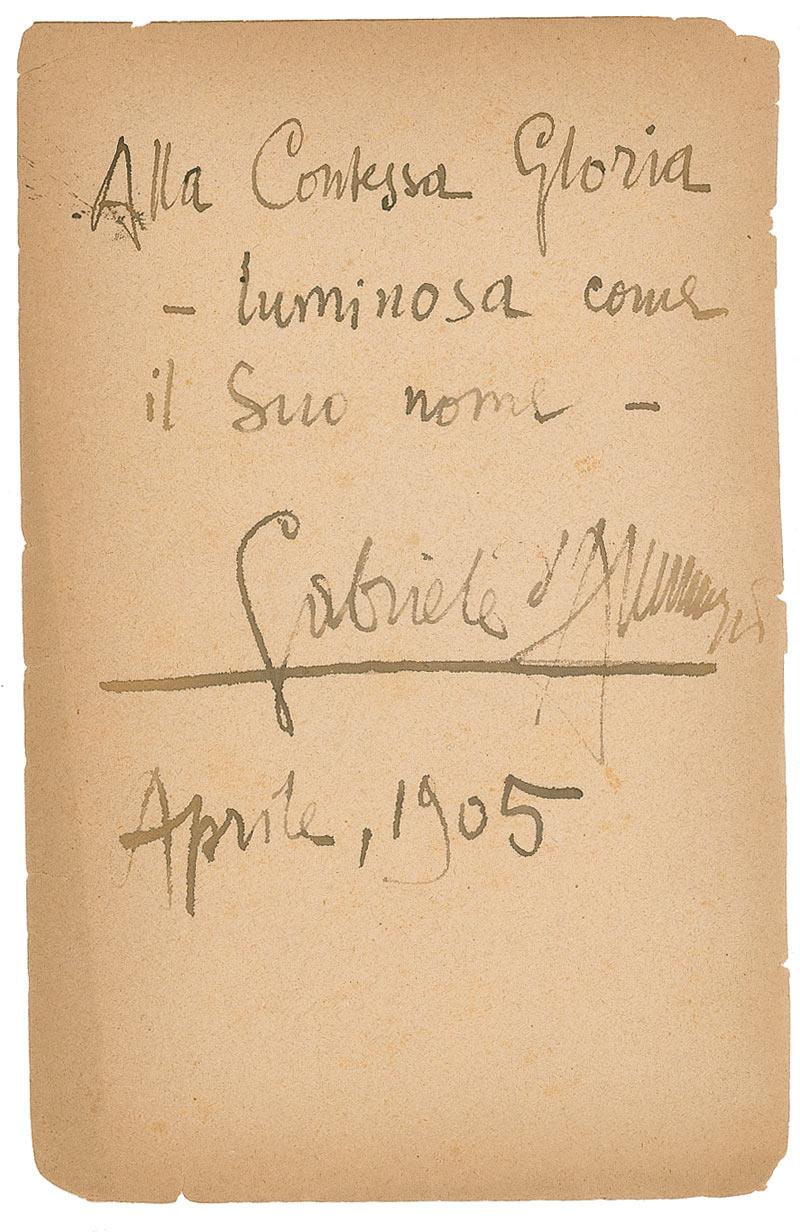 Alla Contessa Gloria
– luminosa come
il Suo nome –
Gabriele d'Annunzio
Aprile, 1905